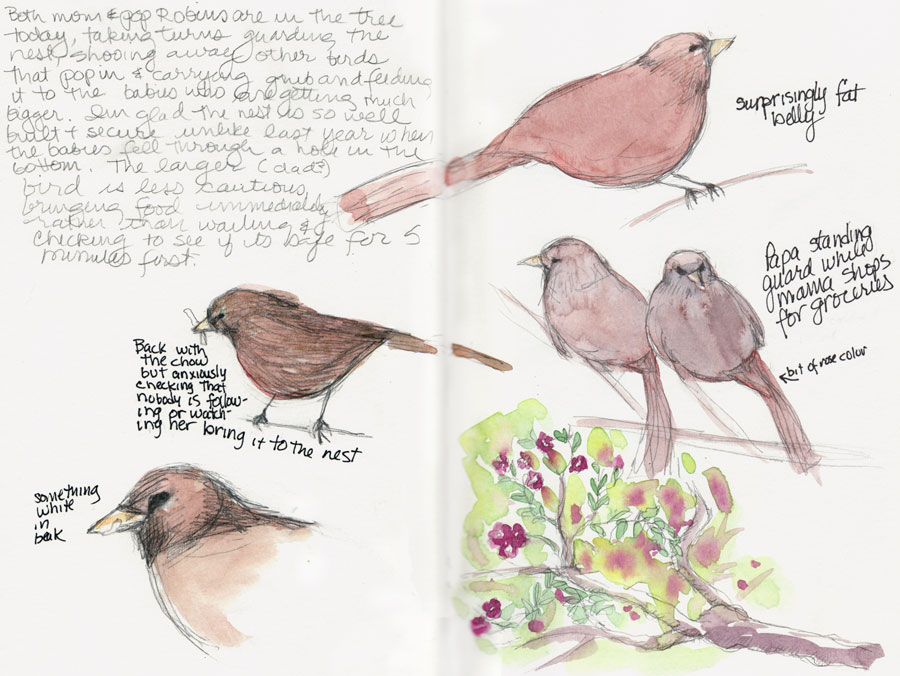 Both mom & pop Robins are in the tree
today, taking turns guarding the
nest, shooing away other birds
that pop in & carrying grub and feeding
it to the babies who are getting much
bigger. I'm glad the nest is so well
built & secure unlike last year when
the babies fell through a hole in the
bottom. The larger (dad?)
bird is less cautious,
bringing food immediately
rather than waiting &
checking to see if its safe for 5
minutes first.
surprisingly fat
belly
Papa standing
guard while
mama shops
for groceries
bit of rose color
Back with
the chow
but anxiously
checking that
nobody is follow-
ing or watch-
ing her bring it to the nest
something
white
in
beak